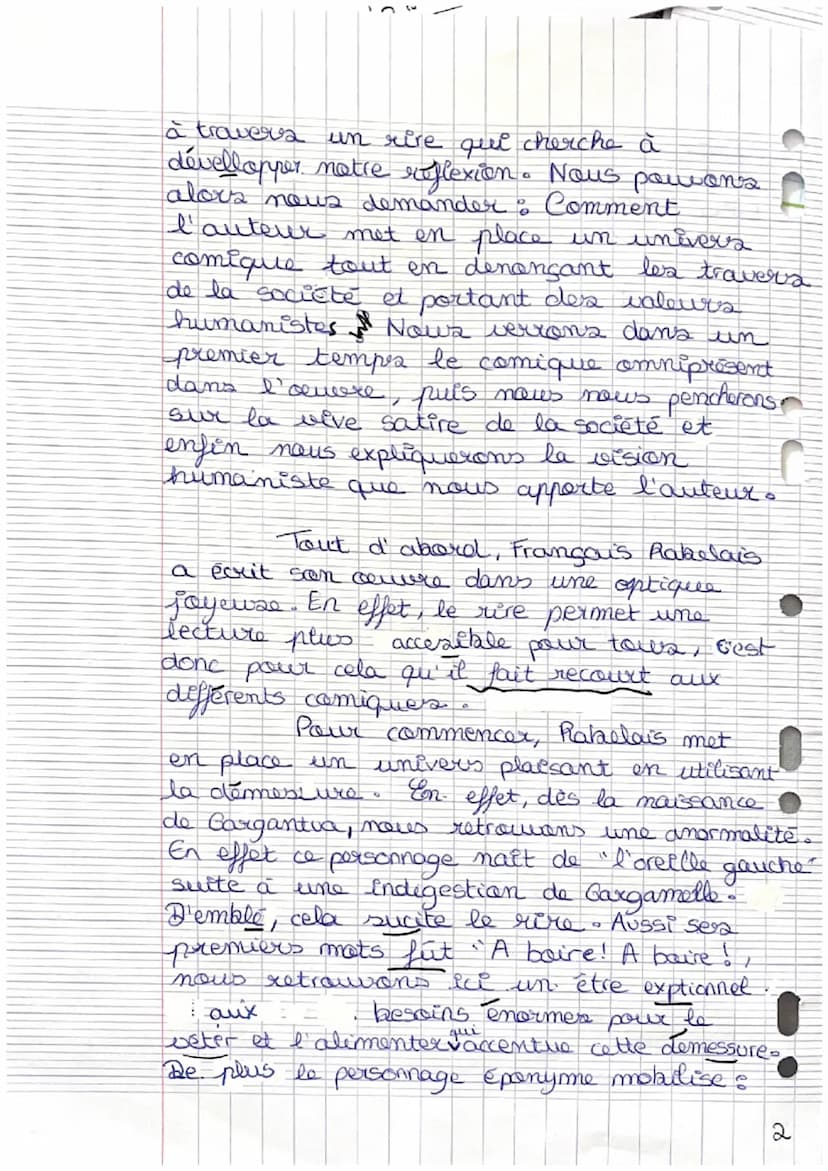 à travers un rire qui cherche à
dévellopper notre réflexion. Nous pouvons
alors nous demander : Comment
l'auteur met en place un univers
comique tout en denonçant les travers
de la société et portant des valeurs
humanistes Nous verrons dans un
premier temps le comique omniprésent
dans l'oeuvre, puis nous nous pencherons
sur la vive satire de la société et
enfin nous expliquerons la vision
humaniste que nous apporte l'auteur.
Tout d'abord, François Rabelais
a écrit son oeuvre dans une optique
joyeuse. En effet, le rire permet une
lecture plus accessible pour tous, c'est
donc pour cela qu'il fait recourt aux
différents comiques.
Pour commencer, Rabelais met
en place un univers plaisant en utilisant
la démesure. En effet, dès la naissance
de Gargantua, nous retrouvons une anormalité.
En effet ce personnage naît de "l'oreille gauche"
suite à une indigestion de Gargamelle.
D'emblé, cela sucite le rire. Aussi ses
premiers mots fût "A boire! A boire!,
nous retrouvons ici un être exptionnel.
aux besoins énormes pour le
vêtir et l'alimenter qui accentue cette demessure.
De plus le personnage éponyme mobilise :
2